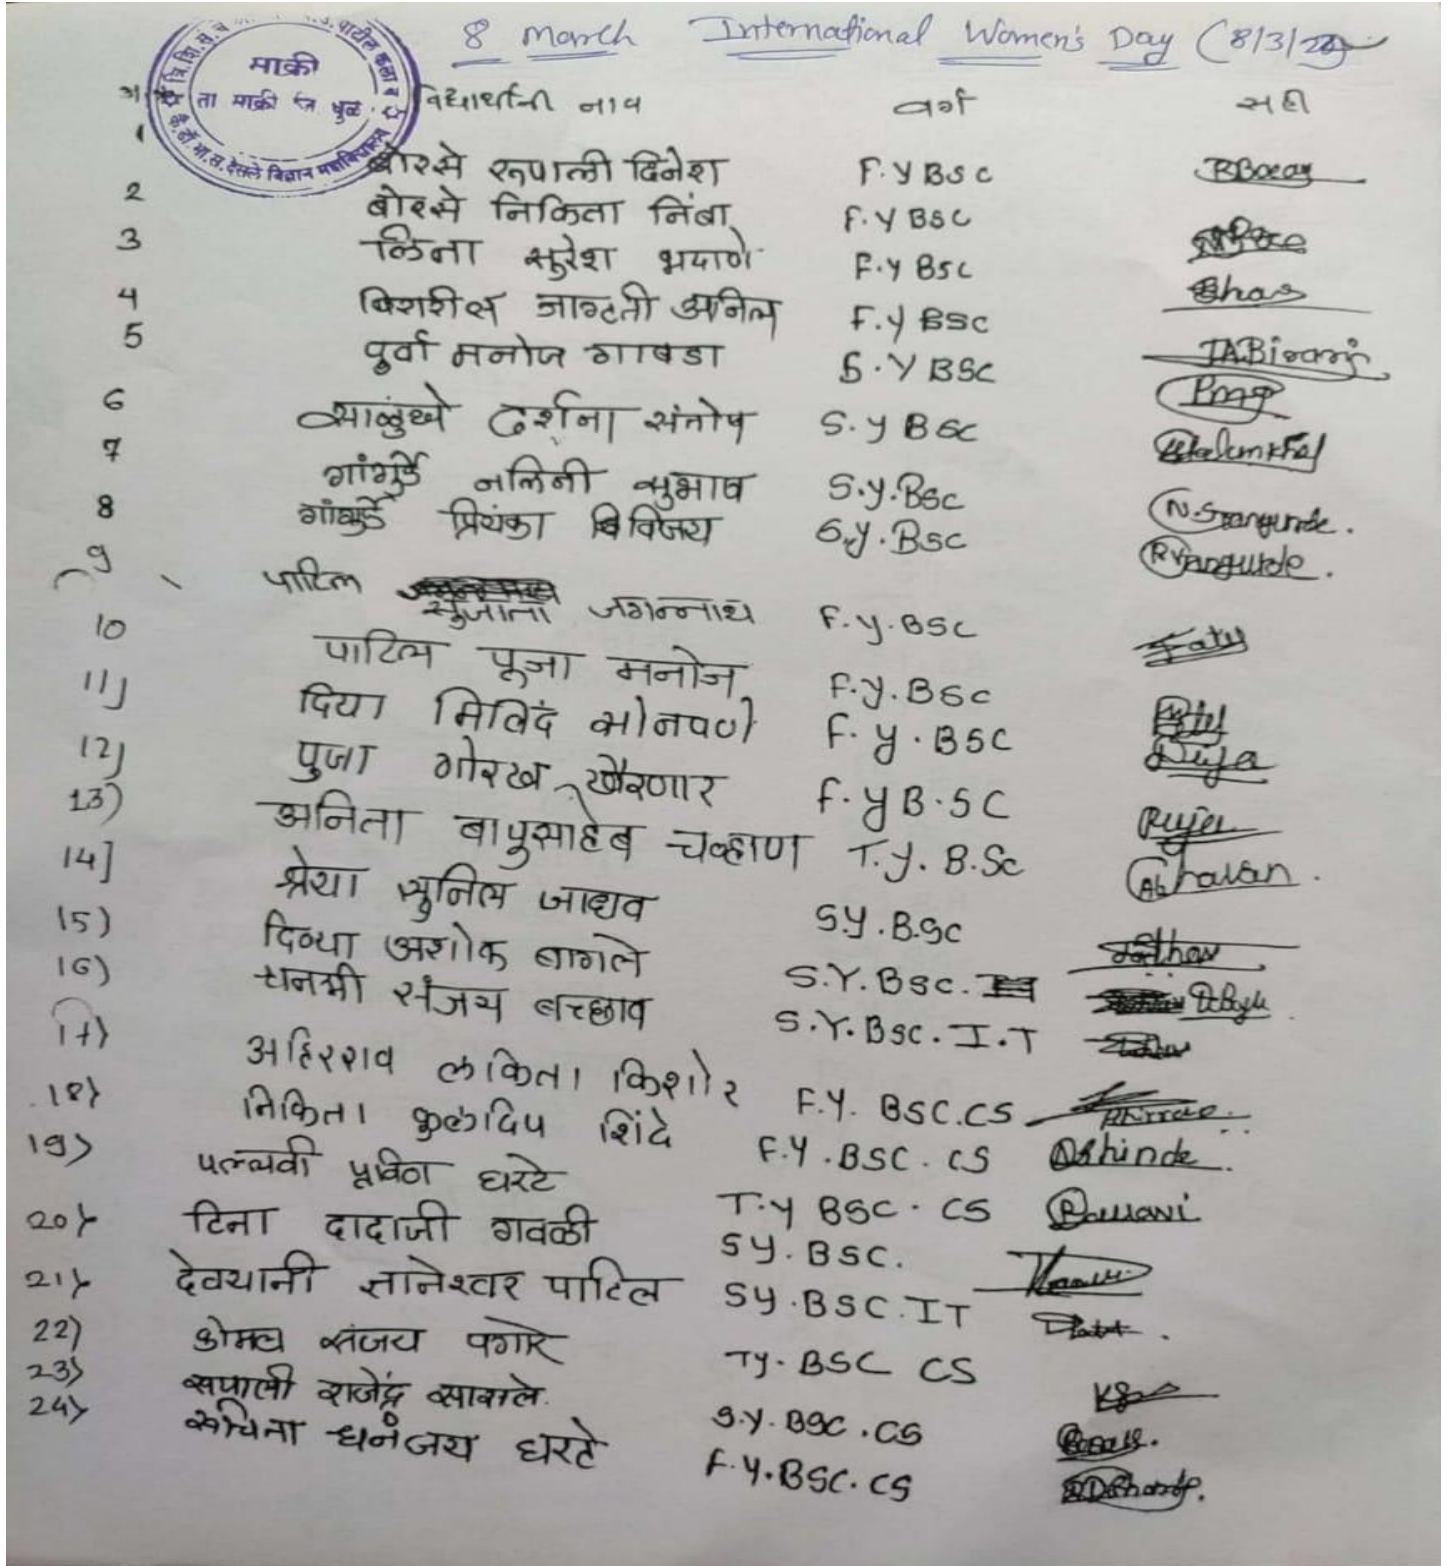 8 March International Women's Day (8/3/23)
माक्री
ता माक्री जि धुळे
विद्यार्थीनी नाव वर्ग सही
1 बोरसे रुपाली दिनेश F.Y BSC
2 बोरसे निकिता निंबा F.Y BSC
3 लिना सुरेश भदाणे F.Y BSC Bhas
4 बिरारीस जागृती अनिल F.Y BSC JABirari
5 पुर्वा मनोज गावडा S.Y BSC
6 साळुंखे दर्शना संतोष S.Y BSC
7 गांगुर्डे नलिनी सुभाष S.Y.BSC
8 गांगुर्डे प्रियंका विजय S.Y.BSC
9 पाटिल सुजाता जगन्नाथ F.Y.BSC
10 पाटिल पूजा मनोज F.Y.BSC
11) दिया मिलिंद सोनवणे F.Y.BSC Diya
12) पुजा गोरख खैरणार F.Y B.SC Puja
13) अनिता बापुसाहेब चव्हाण T.Y. B.Sc Chavan.
14] श्रेया सुनिल जाधव S.Y.B.Sc
15) दिव्या अशोक बागले S.Y.Bsc.
16) धनश्री संजय बच्छाव S.Y.BSC.I.T
17) अहिरराव लकिता किशोर F.Y. BSC.CS
18) निकिता कुलदिप शिंदे F.Y.BSC.CS NShinde.
19) पल्लवी प्रविण घरटे T.Y BSC.CS Pallavi
20) टिना दादाजी गवळी SY.BSC.
21) देवयानी ज्ञानेश्वर पाटिल SY.BSC.IT
22) कोमल संजय पगारे TY.BSC CS
23) रुपाली राजेंद्र सावळे S.Y.BSC.CS
24) रुचिता धनंजय घरटे F.Y.BSC.CS